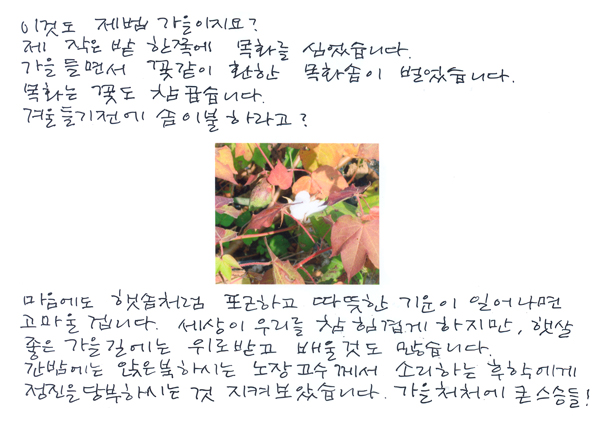 이것도 제법 가을이지요?
제 작은 밭 한쪽에 목화를 심었습니다.
가을 들면서 꽃같이 환한 목화솜이 벌었습니다.
목화는 꽃도 참 곱습니다.
겨울들기전에 솜이불 하라고?
마음에도 햇솜처럼 포근하고 따뜻한 기운이 일어나면
고마울 겁니다. 세상이 우리를 참 힘겹게 하지만, 햇살
좋은 가을길에는 위로받고 배울것도 많습니다.
간밤에는 앉은북하시는 노장고수께서 소리하는 후학에게
정진을당부하시는 것 지켜보았습니다. 가을처처에 큰스승들!